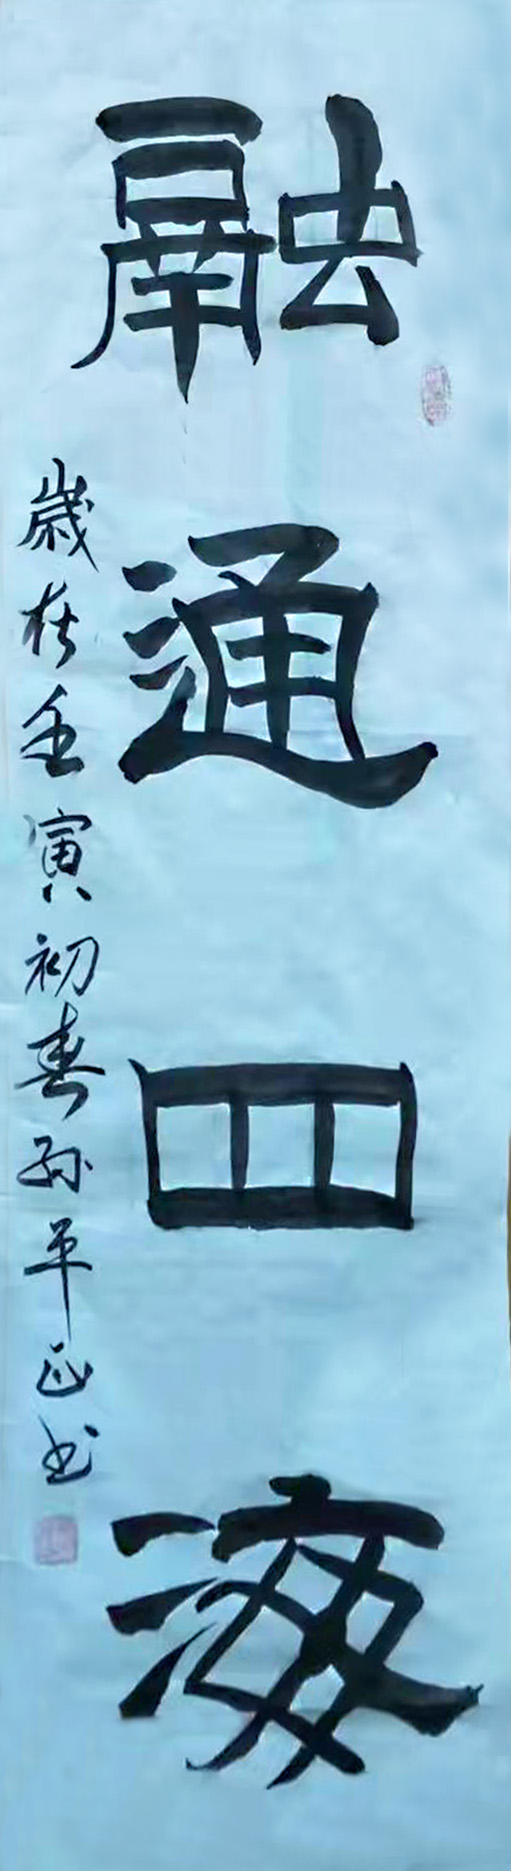 融通四海
歲在壬寅初春孙平正书